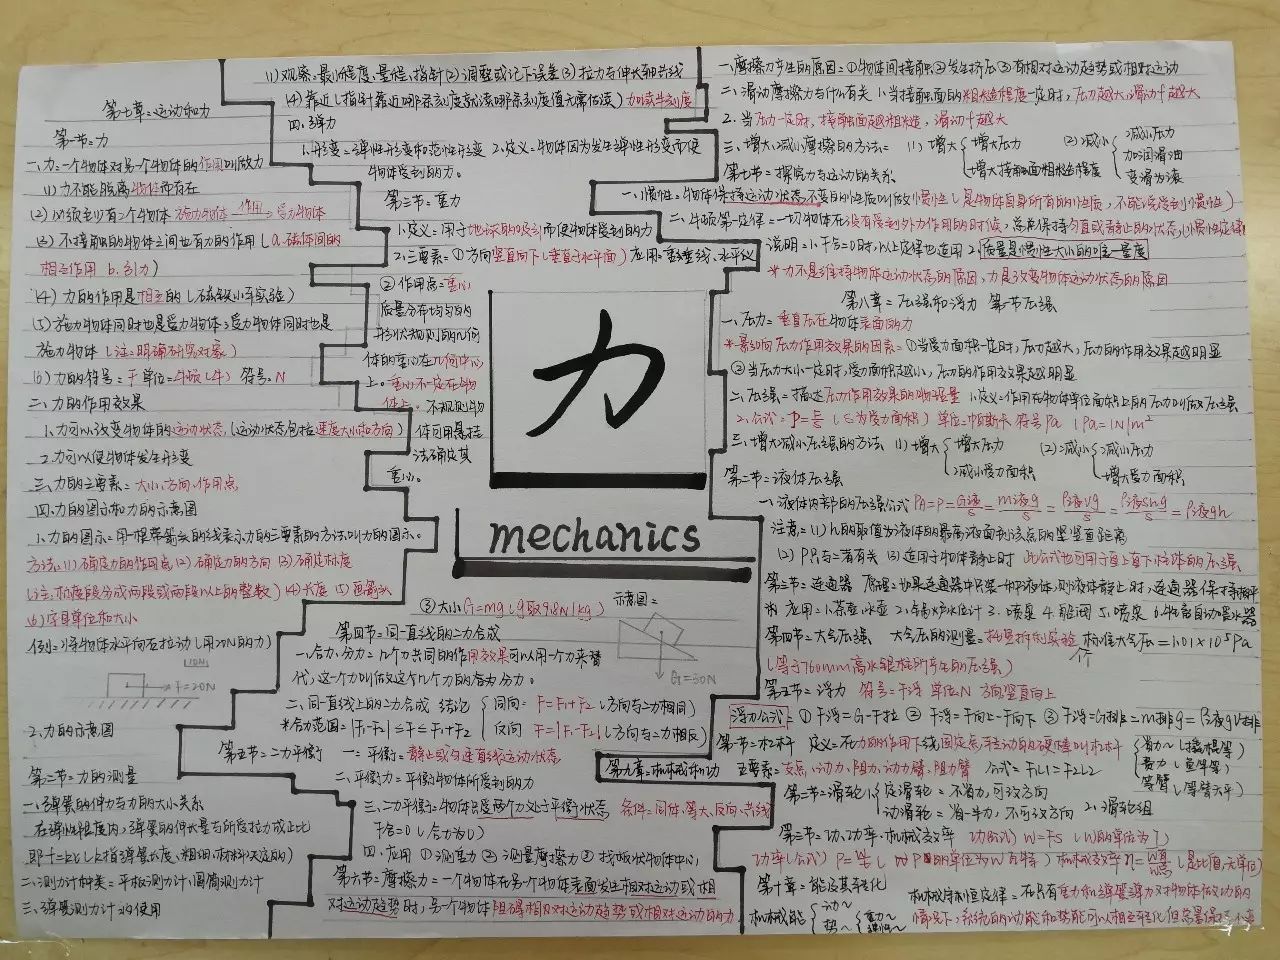 第七章:运动和力
第一节:力
一、力:一个物体对另一个物体的作用叫做力
(1)力不能脱离物体而存在
(2)必须至少有二个物体 施力物体 作用 受力物体
(3)不接触的物体之间也有力的作用(a.磁体间的
相互作用 b.引力)
(4)力的作用是相互的(磁铁小车实验)
(5)施力物体同时也是受力物体,受力物体同时也是
施力物体(注:明确研究对象)
(6)力的符号:F 单位:牛顿(牛) 符号:N
二、力的作用效果
1.力可以改变物体的运动状态,(运动状态包括速度大小和方向)
2.力可以使物体发生形变
三、力的三要素:大小、方向、作用点
四、力的图示和力的示意图
1.力的图示:用一根带箭头的线表示力的三要素的方法叫力的图示。
方法:(1)确定力的作用点(2)确定力的方向(3)确定标度
(注:标度段分成两段或两段以上的整数)(4)长度(5)画箭头
(6)字母单位和大小
例:(将物体水平向右拉动(用20N的力)
10N
F=20N
2.力的示意图
第二节:力的测量
一、弹簧的伸力与力的大小关系
在弹性限度内,弹簧的伸长量与所受拉力成正比
二、测力计种类:平板测力计、圆筒测力计
三、弹簧测力计的使用
(1)观察:最小程度、量程、指针(2)调整或记下误差(3)拉力与伸长轴共线
(4)靠近(指针靠近哪条刻度就读哪条刻度值无需估读)
四、弹力
1.形变:弹性形变和范性形变 2.定义:物体因为发生弹性形变而使
物体受到的力。
第三节:重力
1.定义:用于地球的吸引而使物体受到的力
2.三要素:①方向竖直向下(垂直于水平面)应用:重垂线、水平仪
②作用点:重心
质量分布均匀的
形状规则的几何
体的重心在几何中心
上。重心不一定在物
体上。不规则物
体可用悬挂
法确定其
重心。
力
mechanics
③大小G=mg(g取9.8N/kg) 示意图:
G=30N
第四节:同一直线的二力合成
一、合力、分力:几个力共同的作用效果可以用一个力来替
代,这个力叫做这个几个力的合力分力。
二、同一直线上的二力合成 结论 同向:F=F₁+F₂(方向与二力相同)
*合力范围=|F₁-F₂|≤F≤F₁+F₂ 反向 F=|F₁-F₂|(方向与二力相反)
第五节:二力平衡 一、平衡:静止或匀速直线运动状态
二、平衡力:平衡物体所受到的力
三、二力平衡:物体只受两个力处于平衡状态 条件:同体、等大、反向、共线
F合=0(合力为0)
四、应用 ①测重力②测量摩擦力③找板状物体中心)
第六节:摩擦力:一个物体在另一个物体表面发生相对运动或相
对运动趋势时,另一个物体阻碍相对运动趋势或相对运动的力
一、摩擦力产生的原因:①物体间接触②发生挤压③有相对运动趋势或相对运动
二、滑动摩擦力与什么有关 1.当接触面的粗糙程度一定时,压力越大,滑动f越大
2.当压力一定时,接触面越粗糙,滑动f越大
三、增大、减小摩擦的方法: (1)增大 增大压力 (2)减小 减小压力
增大接触面粗糙程度 加润滑油
变滑为滚
第七节:摩擦力与运动的关系
一、惯性:物体保持运动状态不变的性质叫做惯性(是物体自身所有的性质,不能说受到惯性)
二、牛顿第一定律:一切物体在没有受到外力作用的时候,总是保持匀直或静止的状态,(惯性定律)
说明:1.F合=0时,以上定律也适用 2.质量是惯性大小的唯一量度
*力不是维持物体运动状态的原因,力是改变物体运动状态的原因
第八章:压强和浮力 第一节压强
一、压力:垂直压在物体表面的力
*影响压力作用效果的因素:①当受力面积一定时,压力越大,压力的作用效果越明显
②当压力大小一定时,受力面积越小,压力的作用效果越明显
二、压强:描述压力作用效果的物理量 1.定义:作用在物体单位面积上的压力叫做压强
2.公式:P=F/S(S为受力面积)单位:帕斯卡 符号Pa 1Pa=1N/m²
三、增大减小压强的方法 (1)增大 增大压力 (2)减小 减小压力
减小受力面积 增大受力面积
第二节:液体压强
一、液体内部的压强公式 PA=P=G液/S=m液g/S=ρ液Vg/S=ρ液Shg/S=ρ液gh
注意:(1)h的取值为液体的最高液面到该点的竖直距离
(2)P只与二者有关(3)适用于物体静止时 此公式也可用于直上直下柱体的压强
第三节:连通器 原理:如果连通器中只装一种液体,则液体静止时,连通器保持相平
应用:1.茶壶、水壶 2.锅炉水位计 3.喷泉 4.船闸 5.喷泉 6.牲畜自动喂水器
第四节:大气压强 大气压的测量:托里拆利实验 标准大气压=1.01×10⁵Pa
(等于760mm高水银柱所产生的压强)
第五节:浮力 符号:F浮 单位N 方向竖直向上
浮力公式:①F浮=G-F拉②F浮=F向上-F向下③F浮=G排=m排g=ρ液gV排
第九章:机械和功
第一节:杠杆 定义:在力的作用下绕固定点转动的硬棒叫杠杆 省力~(撬棍等)
五要素:支点、动力、阻力、动力臂、阻力臂 公式:F₁L₁=F₂L₂ 费力~(鱼竿等)
等臂(等臂天平)
第二节:滑轮 1.定滑轮:不省力,可改方向
动滑轮:省一半力,不可改方向 2.滑轮组
第三节:功、功率、机械效率 功(公式)W=FS(W的单位为J)
功率(公式)P=W/t(P的单位为W瓦特)机械效率η=W有用/W总(是比值,无单位)
第十章:能及其转化
机械能 动~
势~ 重力~
弹性~
机械能守恒定律:在只有重力和弹簧弹力对物体做功的
情况下,系统的动能和势能可以相互转化但总量保持不变